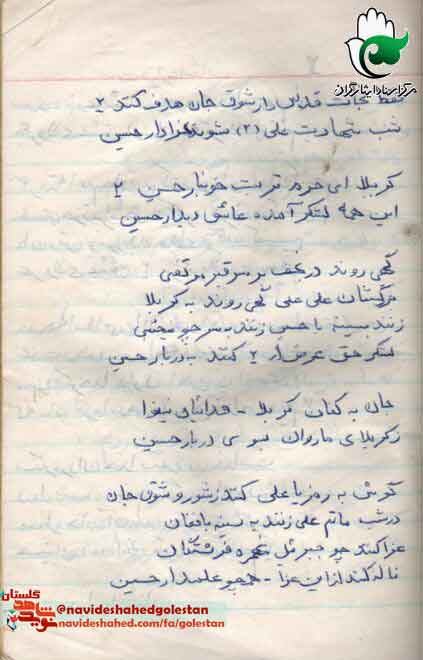 مرکز اسناد ایثارگران
۲
فقط نجات قدس را زشوق جان هدف کنند ۲
شب شهادت علی (۲) شوند عزادار حسین
کربلا ای حرم تربت خونبار حسین ۲
این همه لشکر آمده عاشق دیدار حسین
گهی روند در نجف بر سر قبر مرتضی
علی علی گهی روند به کربلا
زنند سینه یا حسین زنند به سر چو مجتبی
لشکر حق ۲ کنند به دربار حسین
جان به کفان کربلا - فدائیان نینوا
زکربلای ما روان بسوی دربار حسین
گوش به رمز یا علی کنند زشور و شوق جان
در شب ماتم علی زنند به سینه با فغان
عزا کنند چو جبرئیل فرشتگان
ناله کنند از این عزا - همچو علمدار حسین
گلستان
نوید شاهد
@navideshahedgolestan
navideshahed.com/fa/golestan